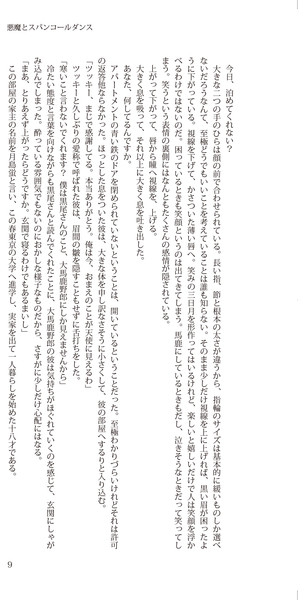 悪魔とスパンコールダンス
今日、泊めてくれない？
大きな二つの手のひらは顔の前で合わせられている。長い指、節と根本の太さが違うから、指輪のサイズは基本的に緩いものしか選べ
ないだろうなんて、至極どうでもいいことを考えていることは誰も知らない。そのまま少しだけ視線を上に上げれば、黒い眉が困ったよ
うに下がっている。視線を下げて、かさついた薄い唇へ。笑みの三日月を形作ってはいるけれど、楽しいと嬉しいだけで人は笑顔を浮か
べるわけではないのだ。困っているときも笑顔というのは出てきてしまう。馬鹿にしているときもだし、泣きそうなときだって笑ってし
まう。笑うという表情の裏側にはなんともたくさんの感情が隠されている。
上がって下がって、唇から瞳へ視線を、上げる。
大きく息を吸って、それ以上に大きく息を吐き出した。
あなた、何してるんですか。
アパートメントの青い鉄のドアを閉められていないということは、開いているということだった。至極わかりづらいけれどそれは許可
の返答他ならない。ほっとした息をついた彼は、大きな体を申し訳なさそうに小さくして、彼の部屋へするりと入り込む。
「ツッキー、まじで感謝してる。本当ありがとう。俺は今、おまえのことが天使に見えるわ」
ツッキーと久しぶりの愛称で呼ばれた彼は、眉間の皺を隠すこともせずに舌打ちをした。
「寒いこと言わないでくれます？　僕は黒尾さんのこと、大馬鹿野郎にしか見えませんから」
冷たい態度と言葉を向けながらも黒尾さんと読んでくれたことに、大馬鹿野郎の彼は気持ちがほぐれていくのを感じて、玄関にしゃが
み込んでしまった。酔っている雰囲気でもないのにおかしな様子なものだから、さすがに少しだけ心配にはなる。
「まあ、とりあえず上がったらどうですか。玄関で寝るわけでもあるまいし」
この部屋の家主の名前を月島蛍と言い、この春東京の大学へ進学し、実家を出て一人暮らしを始めた十八才である。
9